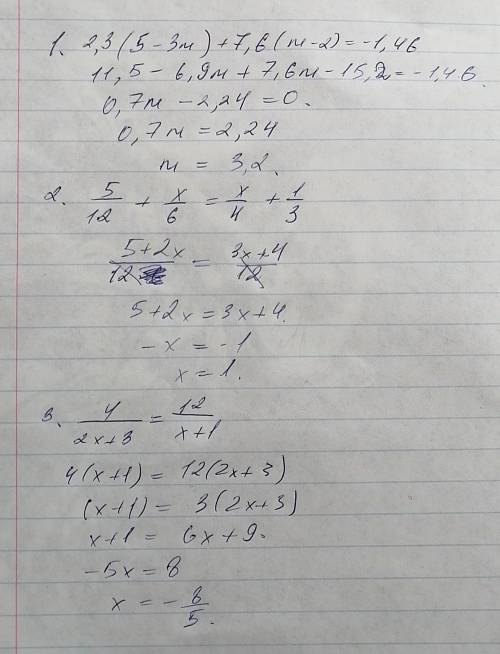 1. 2,3(5-3m)+7,6(m-2)=-1,46
11,5-6,9m+7,6m-15,2=-1,46.
0,7m-2,24=0.
0,7m=2,24
m=3,2.
2. 5/12 + x/6 = x/4 + 1/3
5+2x/12 = 3x+4/12
5+2x=3x+4.
-x=-1
x=1.
3. 4/2x+3 = 12/x+1
4(x+1)=12(2x+3)
(x+1)=3(2x+3)
x+1=6x+9.
-5x=8
x=-8/5.